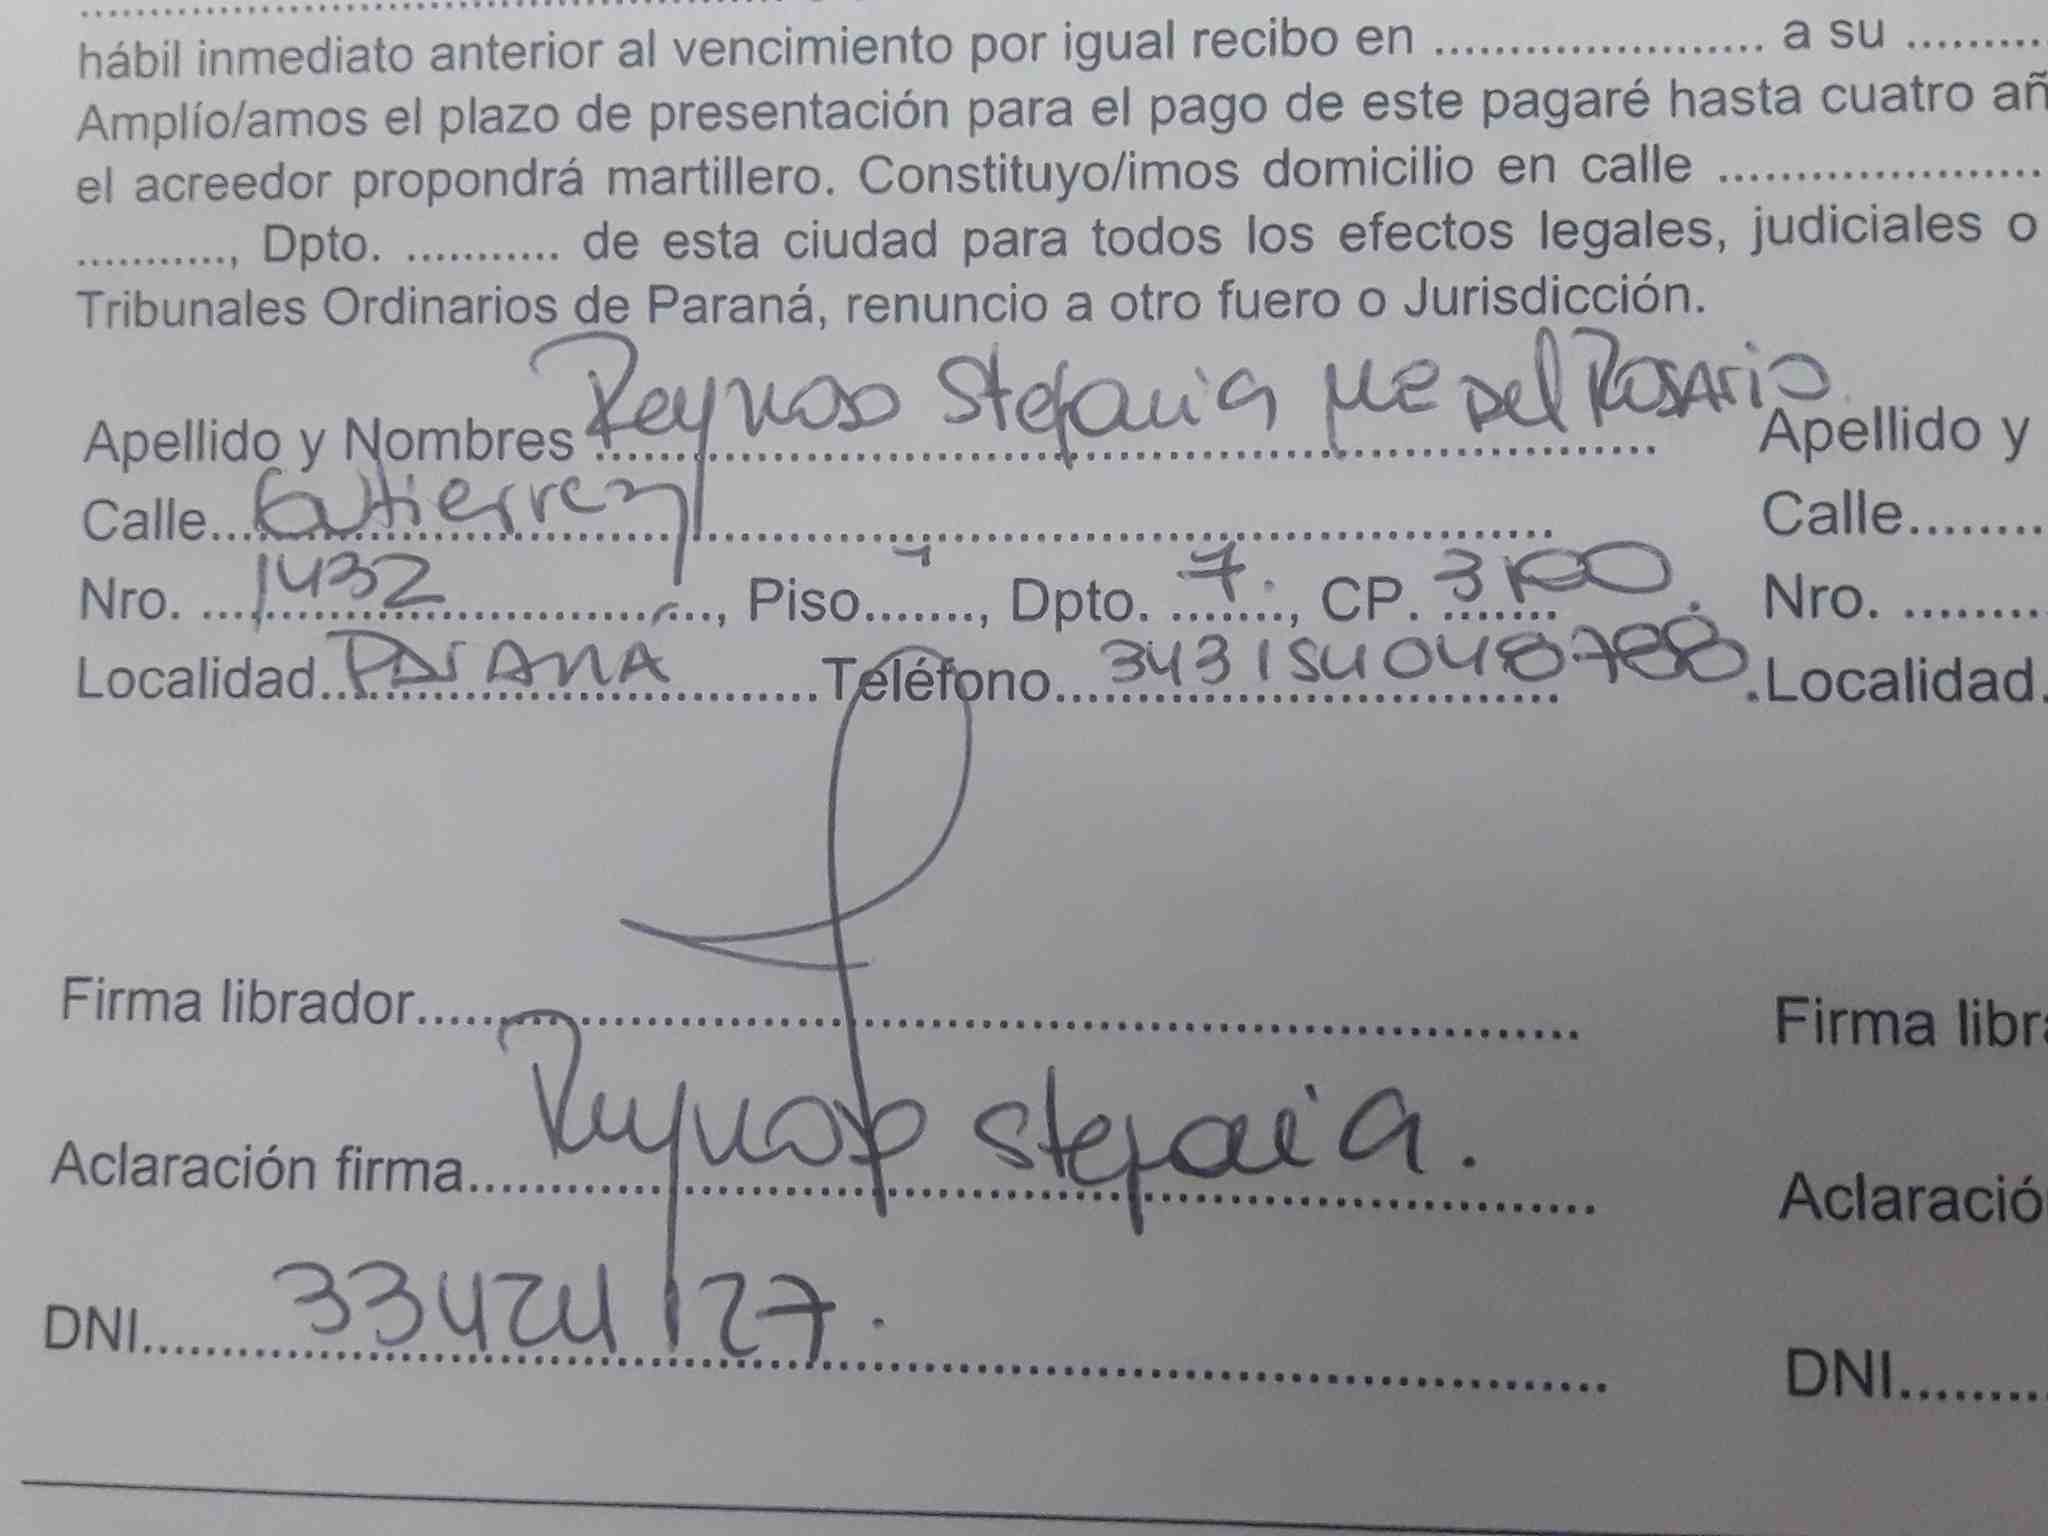 hábil inmediato anterior al vencimiento por igual recibo en ...................... a su ..........
Amplío/amos el plazo de presentación para el pago de este pagaré hasta cuatro añ
el acreedor propondrá martillero. Constituyo/imos domicilio en calle .....................
..........., Dpto. ........... de esta ciudad para todos los efectos legales, judiciales o
Tribunales Ordinarios de Paraná, renuncio a otro fuero o Jurisdicción.
Apellido y Nombres Reynoso Stefania Del Rosario Apellido y
Calle Gutierrez Calle
Nro. 1432, Piso - , Dpto. 7., CP. 3100. Nro.
Localidad PARANÁ Teléfono 343154048788. Localidad
Firma librador Firma libr
Aclaración firma Reynoso Stefania. Aclaració
DNI 33424127. DNI